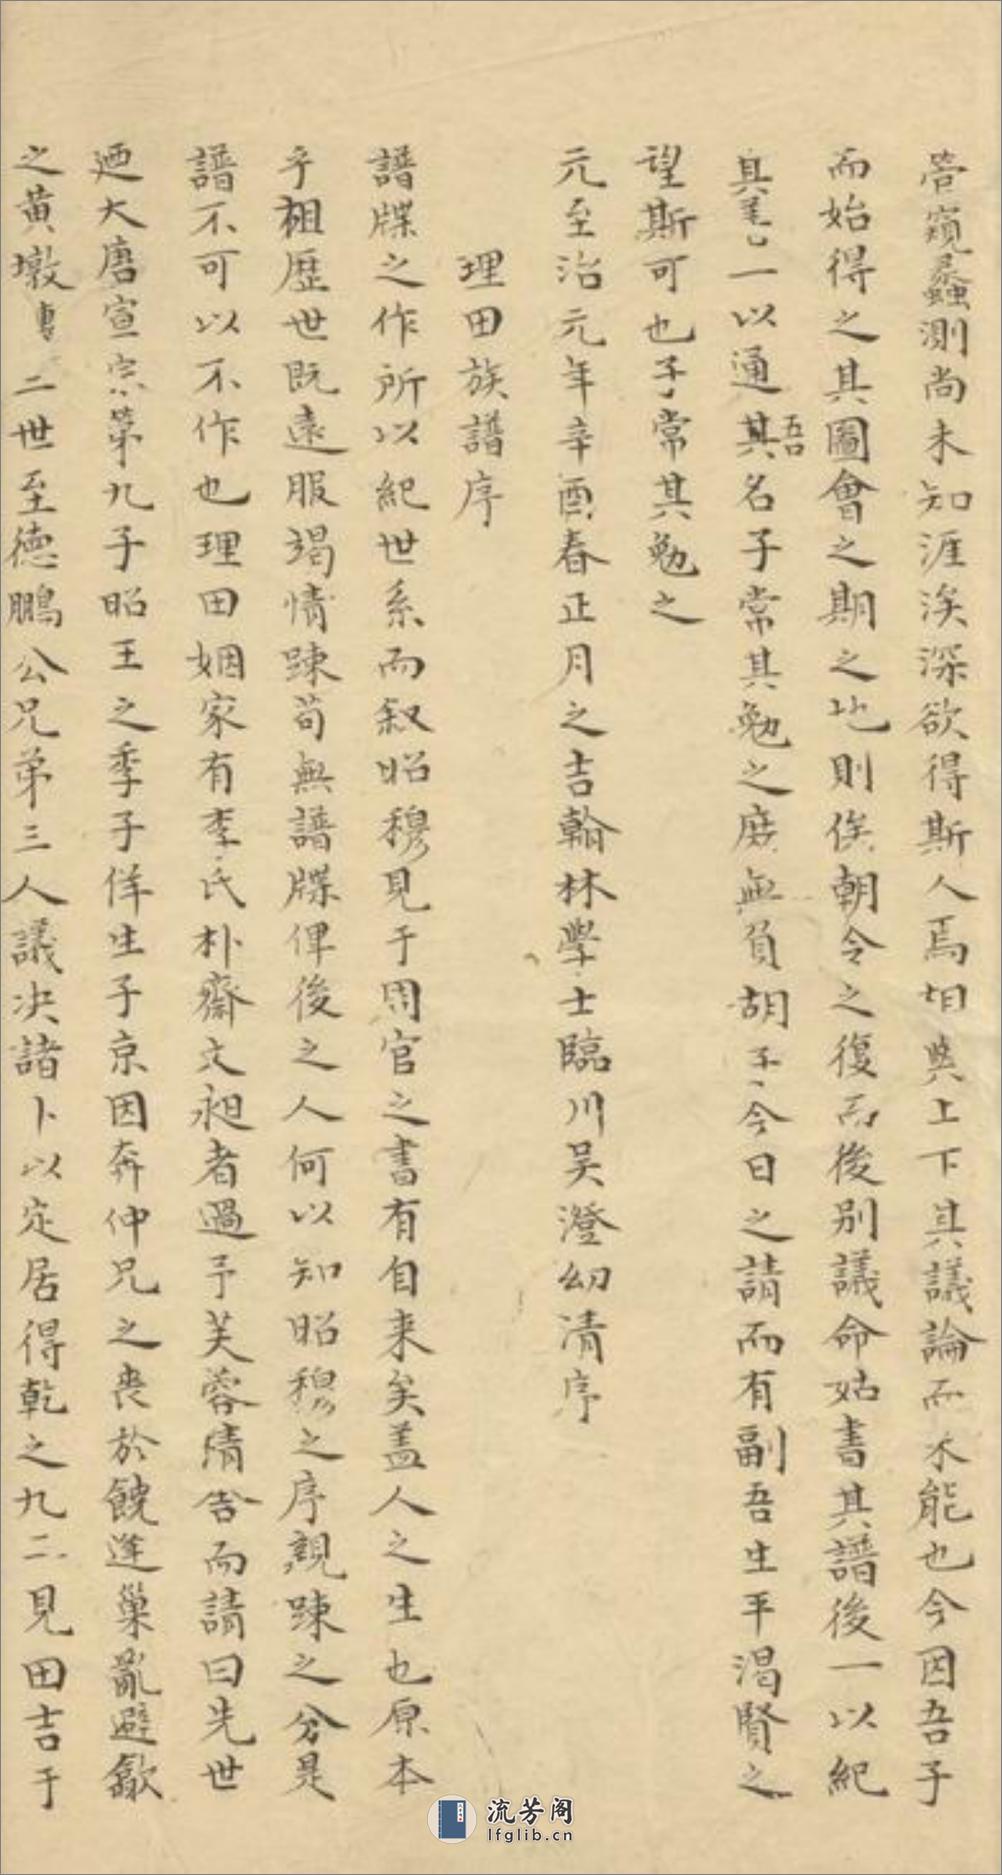 管窺蠡測尚未知涯涘深欲得斯人焉相與上下其議論而不能也今因吾子
而始得之其圖會之期之地則俟朝令之復而後別議命姑書其譜後一以紀
其美一以通其吾名子常其勉之庶無負胡子今日之請而有副吾生平渴賢之
望斯可也子常其勉之
元至治元年辛酉春正月之吉翰林學士臨川吴澄幼清序
理田族譜序
譜牒之作所以紀世系而叙昭穆見于周官之書有自来矣盖人之生也原本
乎祖歷世既遠服竭情踈苟無譜牒俾後之人何以知昭穆之序親踈之分是
譜不可以不作也理田姻家有李氏朴齋文昶者過予芙蓉精舍而請曰先世
廼大唐宣宗第九子昭王之季子佯生子京因奔仲兄之喪於饒逢巢亂避歙
之黄墩二世至德鵬公兄弟三人議决諸卜以定居得乾之九二見田吉于
流芳阁
lfglib.cn